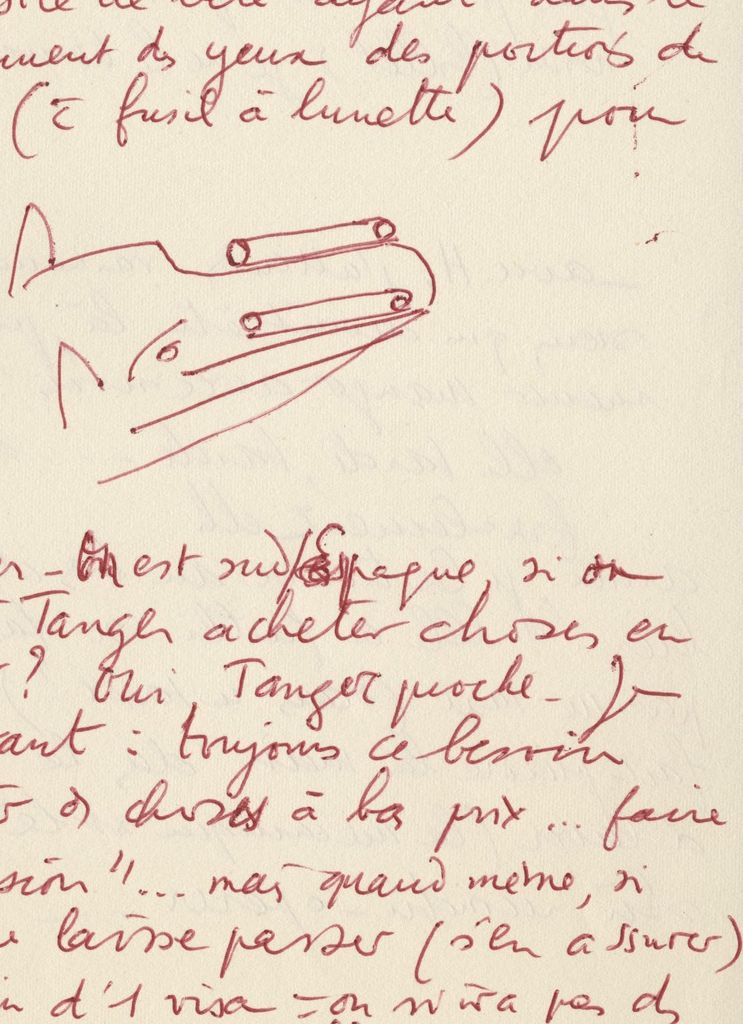 ment des yeux des portiors de
(c̄ fusil à lunette) pour
- On est sud/Espagne, si on
Tanger acheter choses en
? Oui, Tanger proche - Je
ant : toujours ce besoin
ds choses à bas prix... faire
sion"... mais quand même, si
laisse passer (s'en assurer)
d'1 visa = on n'ira pas ds